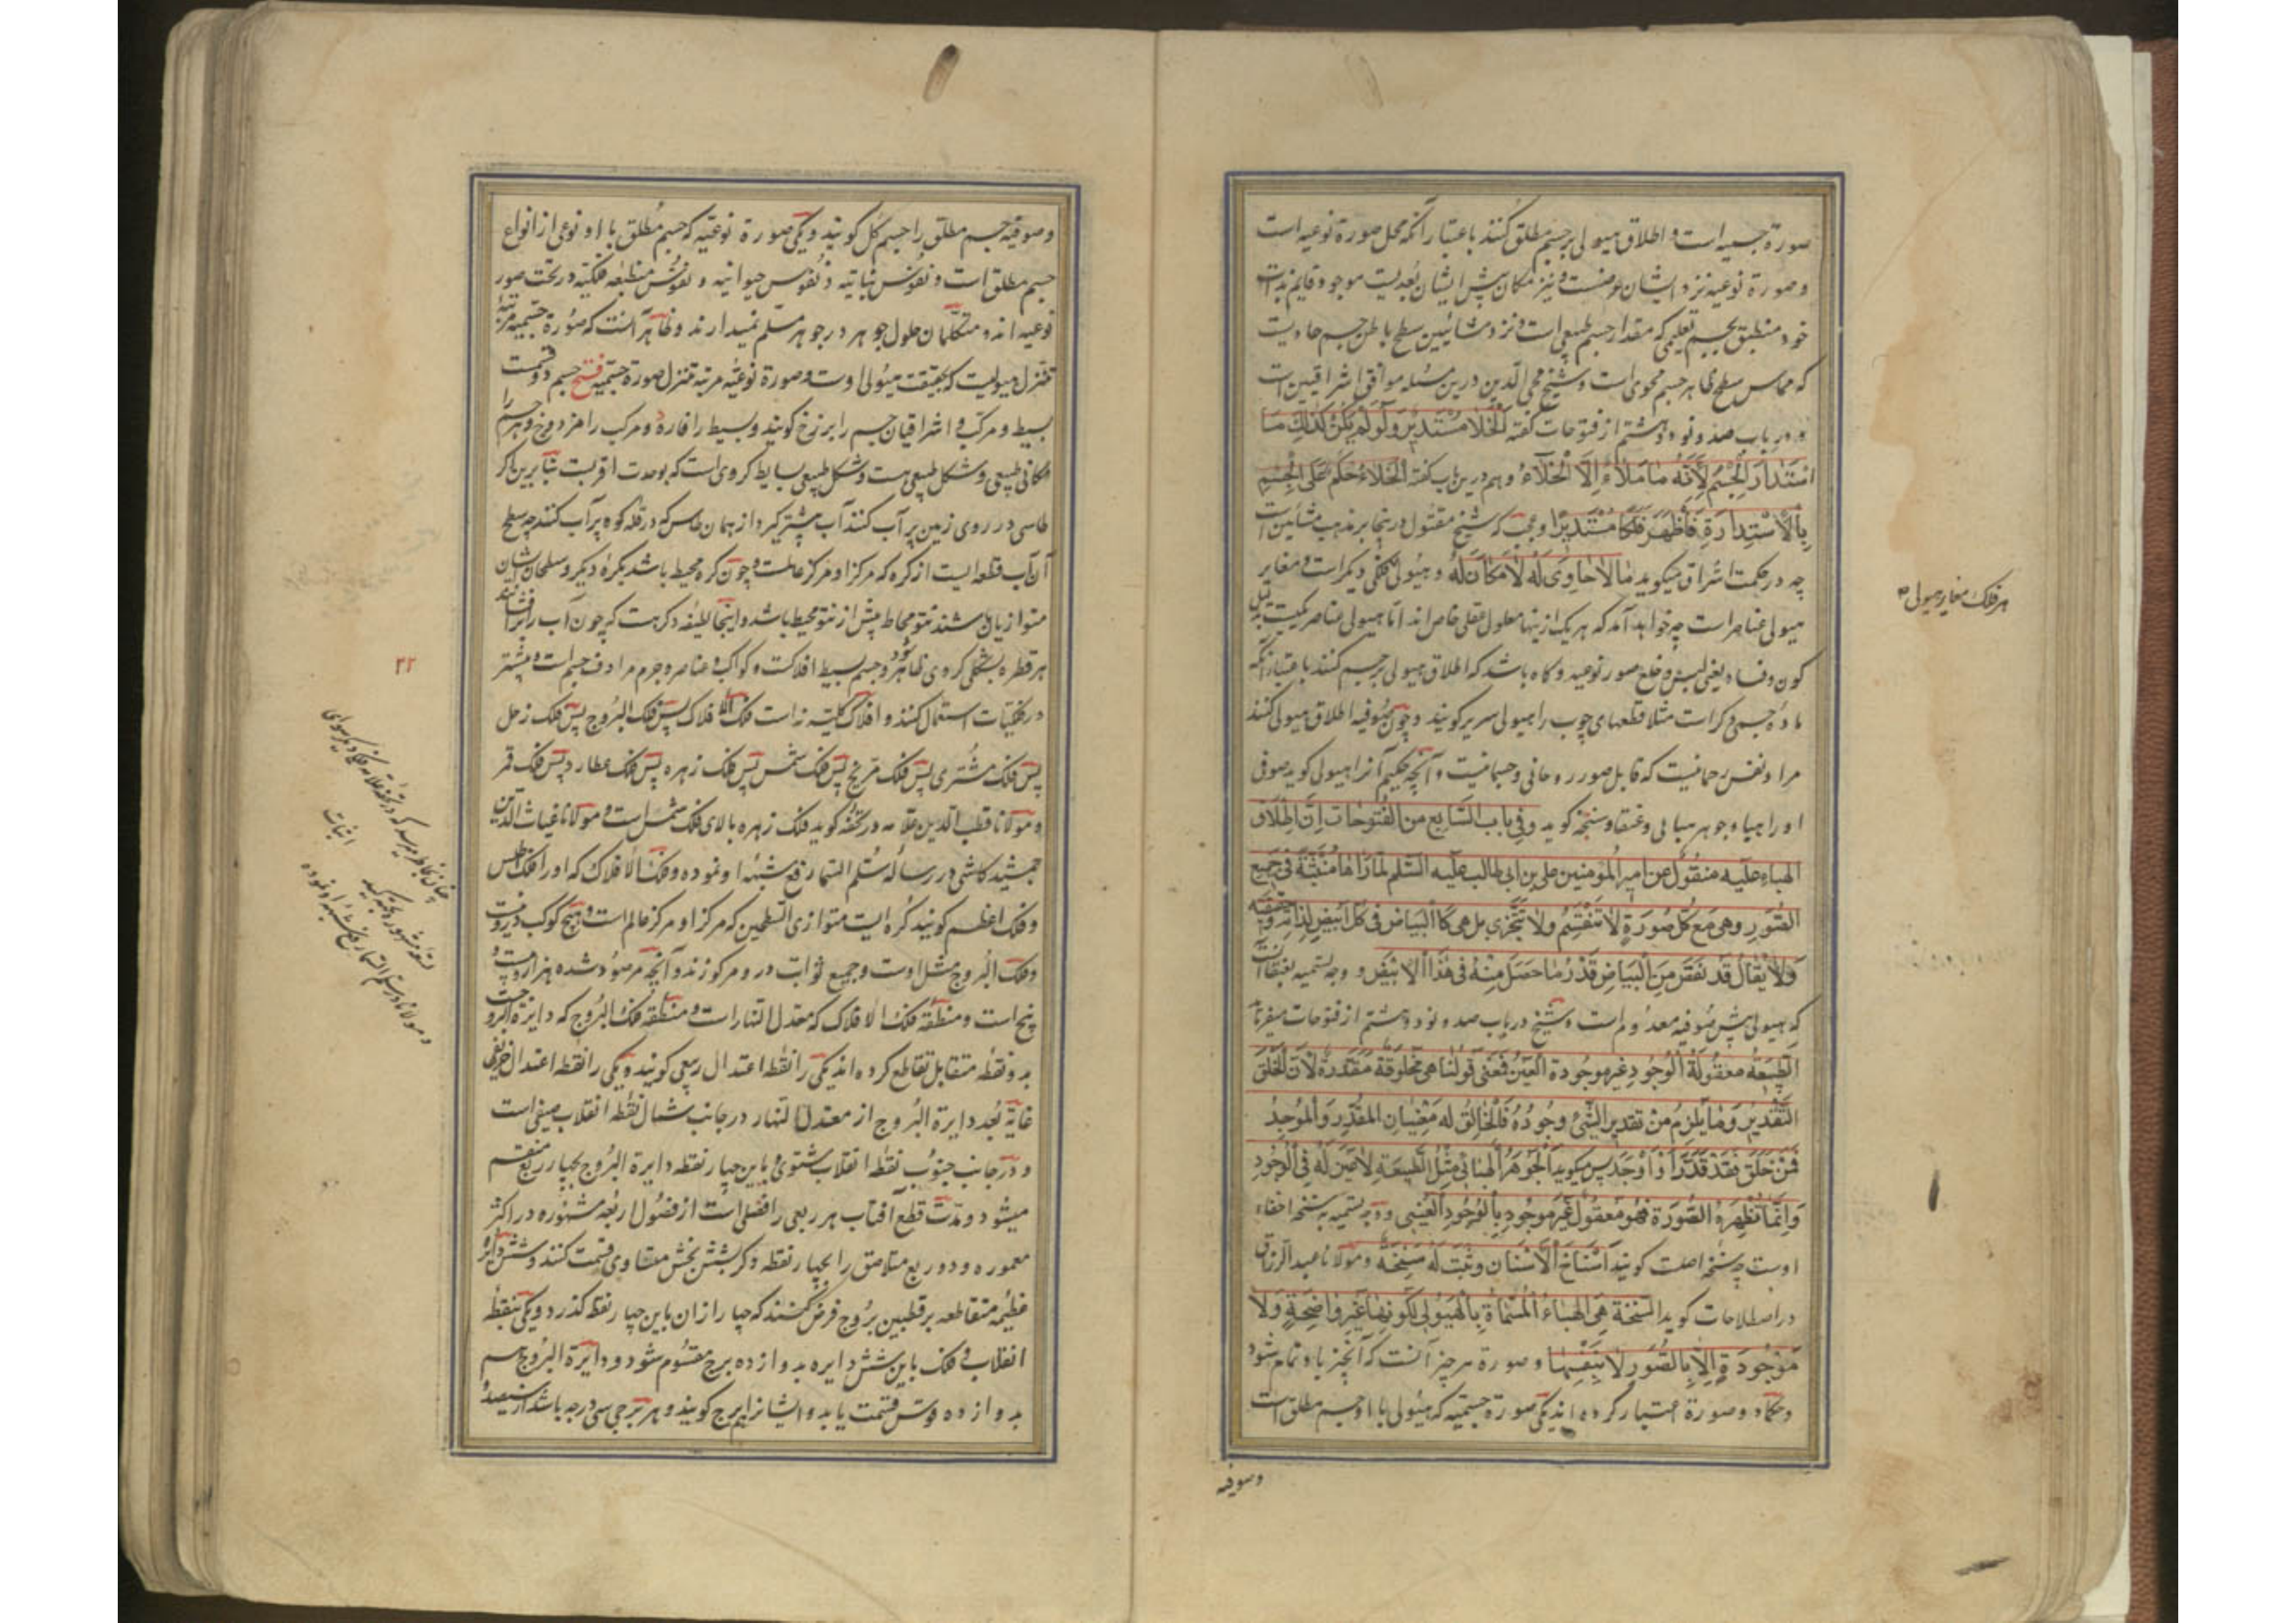 صورة جسمیه است و اطلاق هیولی بر جسم مطلق کنند باعتبار آنکه محل صورة نوعیه است
و صورة نوعیه نزد ایشان عرضست و نیز مکان پیش ایشان بُعدیست موجود قایم بذات
خود منطبق بجسم تعلیمی که مقدار جسم طبیعی است و نزد مشائیین سطح باطن جسم حاویست
که مماس سطح ظاهر جسم محوی است و شیخ محی الدین درین مسئله موافق اشراقیین است
و در باب صد و نود و هشتم از فتوحات گفته الْخَلَا مُسْتَدِیرٌ وَلَو لَمْ یَکُنْ کَذٰلِكَ مَا
اسْتَدَارَ الْجِسْمُ لِأَنَّهُ مَا مَلَأَهُ اِلَّا الْخَلَاءُ و هم درین باب گفته الْخَلَاءُ حَکَمَ عَلَی الْجِسْمِ
بِالْاِسْتِدَارَةِ فَأَظْهَرَ فَلَکًا مُسْتَدِیرًا و عجب که شیخ مقتول درینجا بر مذهب مشائین است
چه در حکمت اشراق میگوید مَا لَا حَاوِیَ لَهُ لَا مَکَانَ لَهُ و هیولی فلکی دیگر است و مغایر
هیولی عناصر است چه خواهد آمد که هر یک ازینها معلول عقلی خاص اند اما هیولی عناصر یکیست بدلیل
کون و فساد یعنی لبس و خلع صور نوعیه و گاه باشد که اطلاق هیولی بر جسم کنند باعتبار آنکه
مادۀ جسمی دیگر است مثلا قطعهای چوب را هیولی سریر گویند و چون صوفیه اطلاق هیولی کنند
مراد نفس رحمانیست که قابل صور روحانی و جسمانیست و آنچه حکیم آنرا هیولی گوید صوفی
او را هبا و جوهر هبائی و عنقا و سنخه گوید وفی باب السَّابِع من الفُتُوحات اِنَّ اِطْلَاقَ
الهباءِ علیه منقُولٌ عن امیر المؤمنین علی بن ابی طالب علیه السَّلم لَمَّا رَآهَا مُنْبَثَّةً فی جَمِیع
الصُّوَر وهی مَعَ کُلِّ صُورَةٍ لَا تَنْقَسِمُ ولا تَتَجَزَّی بل هی کَالْبَیَاضِ فی کُلِّ اَبْیَضٍ لِذَاتِهِ وحقیقته
وَلَا یُقَالُ قَد نَقَصَ مِنَ الْبَیَاضِ قَدْرُ مَا حَصَلَ مِنْهُ فی هٰذَا الْاَبْیَضِ و وجه تسمیه بعنقا آنست
که هیولی پیش صوفیه معدوم است و شیخ در باب صد و نود و هشتم از فتوحات میفرماید
الطَّبِیعَةُ معقُولَةُ الْوُجُودِ غیر موجُودة العَیْنِ فمعنی قولنا هی مخلوقة مُقَدَّرَةٌ لِاَنَّ الْخَلْقَ
التَّقْدِیر وَمَا یَلْزَمُ مِنْ تقدیر الشَّیْءِ وُجُودُهُ فَالْخَالِقُ له مَعْنَیَانِ المقدِّر وَالْمُوجِد
فَمَنْ خَلَقَ فَقَدْ قَدَّرَ اَوْ اَوْجَدَ پس میگوید الْجَوْهَرُ الْهَبَائیُّ مِثْلُ الطَّبِیعَةِ لَا عَیْنَ لَهُ فی الْوُجُودِ
وَاِنَّمَا تُظْهِرُهُ الصُّورَة فَهُوَ مَعْقُولٌ غَیْر موجُودٍ بِالْوُجُودِ الْعَیْنِی و وجه تسمیه به سنخه اخفاء
اوست چه سنخ اصلست گویند اَسْنَاخُ الْاَسْنَان و ثبتت له سِنْخَةٌ و مولانا عبد الرزاق
در اصطلاحات گوید السَّنَخَة هِیَ الهَبَاءُ الْمُسَمَّاة بِالْهَیُولی لِکَوْنِهَا غَیْر وَاضِحَةٍ وَلَا
مَوْجُودَةٍ اِلَّا بِالصُّوَرِ لَا بِنَفْسِهَا و صورة هر چیز آنست که آنچیز باو تمام شود
و حکما دو صورة اعتبار کرده اند یکی صورة جسمیه که هیولی با او جسم مطلق است
و صوفیه
هر فلک مغایر هیولی
و صوفیه جسم مطلق را جسم کُل گویند و یکی صورة نوعیه که جسم مُطلق با او نوعی از انواع
جسم مطلق است و نفوس نباتیه و نفوس حیوانیه و نفوس منطبعه فلکیه در تحت صور
نوعیه اند و متکلمان حلول جوهر در جوهر مسلّم نمیدارند و ظاهر آنست که صورة جسمیه مرتبۀ
تنزل هیولیست که بحقیقت هیولی اوست و صورة نوعیه مرتبه تنزل صورة جسمیه فتح جسم دو قسمست
بسیط و مرکب و اشراقیان جسم را برزخ گویند و بسیط را فارد و مرکب را مزدوج و هر جسم را
مکانی طبیعی و شکل طبیعی هست و شکل طبیعی بسایط کروی است که بوحدت اقربست بنا برین اگر
طاسی در روی زمین پر آب کنند آب بیشتر گیرد از همان طاس که در قله کوه پر آب کنند چه سطح
آن آب قطعه ایست از کره که مرکز او مرکز عالمست و چون کره محیط باشد بکره دیگر و سطحان ایشان
متوازیان باشند نتو محاط بیش از نتو محیط باشد و اینجا لطیفه دیگر هست که چون آب را بر افشانند
هر قطره بشکل کروی ظاهر شود و جسم بسیط افلاکست و کواکب و عناصر و جرم مرادف جسم است و بیشتر
در فلکیات استعمال کنند و افلاک کلیه نه است فلک الافلاک پس فلک البروج پس فلک زحل
پس فلک مشتری پس فلک مریخ پس فلک شمس پس فلک زهره پس فلک عطارد پس فلک قمر
و مولانا قطب الدین علامه در تحفه گوید فلک زهره بالای فلک شمس است و مولانا غیاث الدین
جمشید کاشی در رساله سُلَّم السّما رفع شبهه او نموده و فلک الافلاک که او را فلک اطلس
و فلک اعظم گویند کُره ایست متوازی السطحین که مرکز او مرکز عالم است و هیچ کوکب درو نیست
و فلک البروج مثل اوست و جمیع ثوابت درو مرکوزند و آنچه مرصود شده هزار و بیست و
پنج است و منطقه فلک الافلاک که معدل النهار است و منطقه فلک البروج که دایرة البروجست
بدو نقطه متقابل تقاطع کرده اند یکی را نقطه اعتدال ربیعی گویند و یکی را نقطه اعتدال خریفی
غایة بُعد دایرة البروج از معدل النهار در جانب شمال نقطه انقلاب صیفی است
و در جانب جنوب نقطه انقلاب شتوی و باین چهار نقطه دایرة البروج بچهار ربع منقسم
میشود و مدّت قطع آفتاب هر ربعی را فصلی است از فصول اربعه مشهوره در اکثر
معموره و دو ربع متلاصق را بچهار نقطه دیگر بشش بخش متساوی قسمت کنند و شش دایره
عظیمه متقاطعه بر قطبین بُروج فرض کنند که چهار از آن باین چهار نقطه گذرد و یکی بنقطۀ
انقلاب و فلک باین شش دایره بدوازده برج مقسوم شود و دایرة البروج هم
بدوازده قوس قسمت یابد و ایشانرا هم برج گویند و هر برجی سی درجه باشد از سیصد و
۲۲